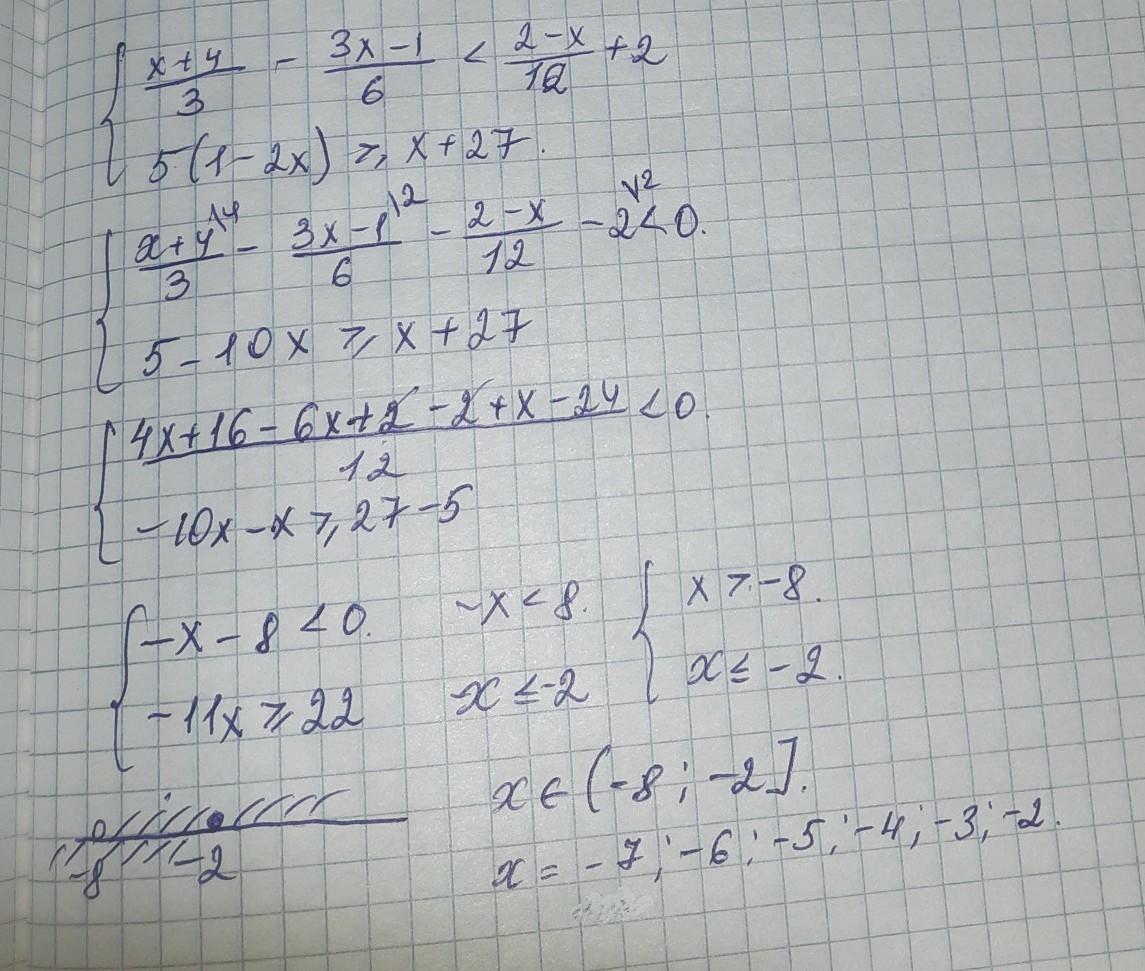 { (x+4)/3 - (3x-1)/6 < (2-x)/12 + 2
5(1-2x) ⩾ x+27.
{ (x+4)/3 \4 - (3x-1)/6 \2 - (2-x)/12 - 2 < 0.
5-10x ⩾ x+27
{ (4x+16-6x+2-2+x-24)/12 < 0.
-10x-x ⩾ 27-5
{ -x-8 < 0. -x < 8. { x > -8.
-11x ⩾ 22 x ≤ -2 x ≤ -2.
-8 -2
x ∈ (-8; -2].
x = -7; -6; -5; -4; -3; -2.